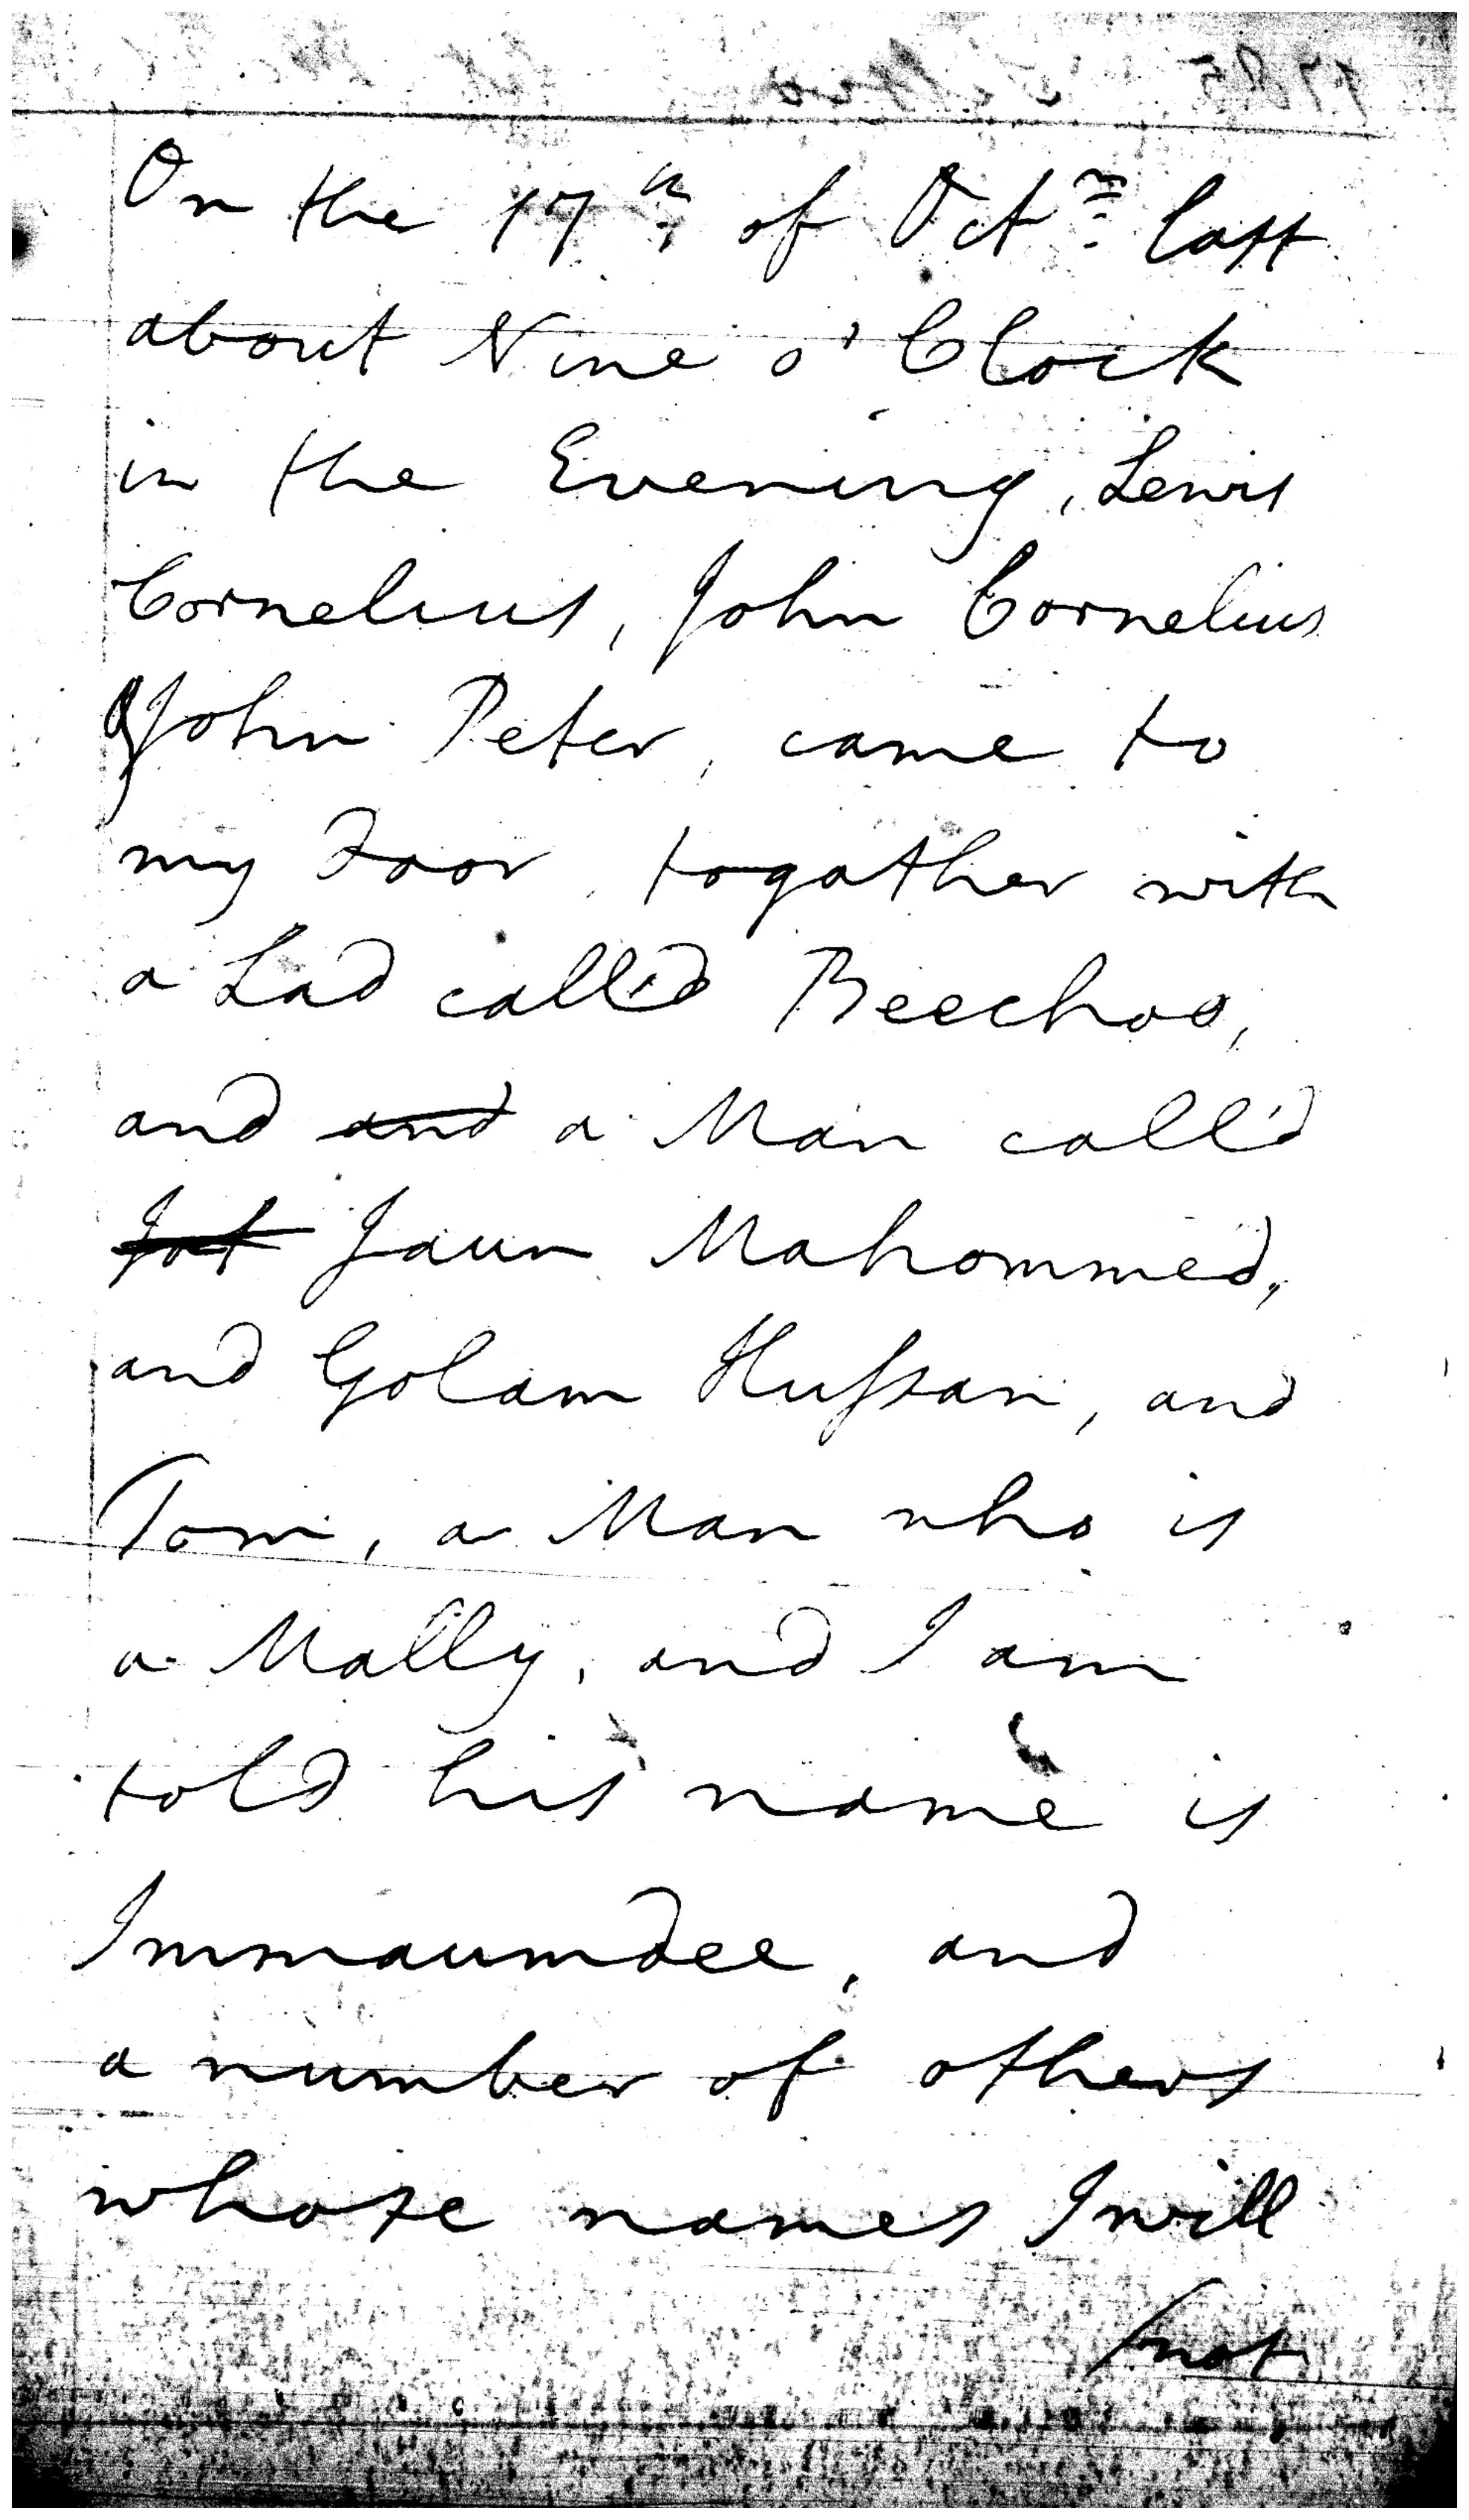 On the 17th of Octr last
about Nine o'Clock
in the Evening, Lewis
Cornelius, John Cornelius
John Peter, came to
my Door, togather with
a Lad call'd Beechoo,
and and a Man call'd
Jaun Mahommed,
and Golam Hussan, and
Tom, a Man who is
a Mally, and I am
told his name is
Immaumdee, and
a number of others
whose names I will
/not